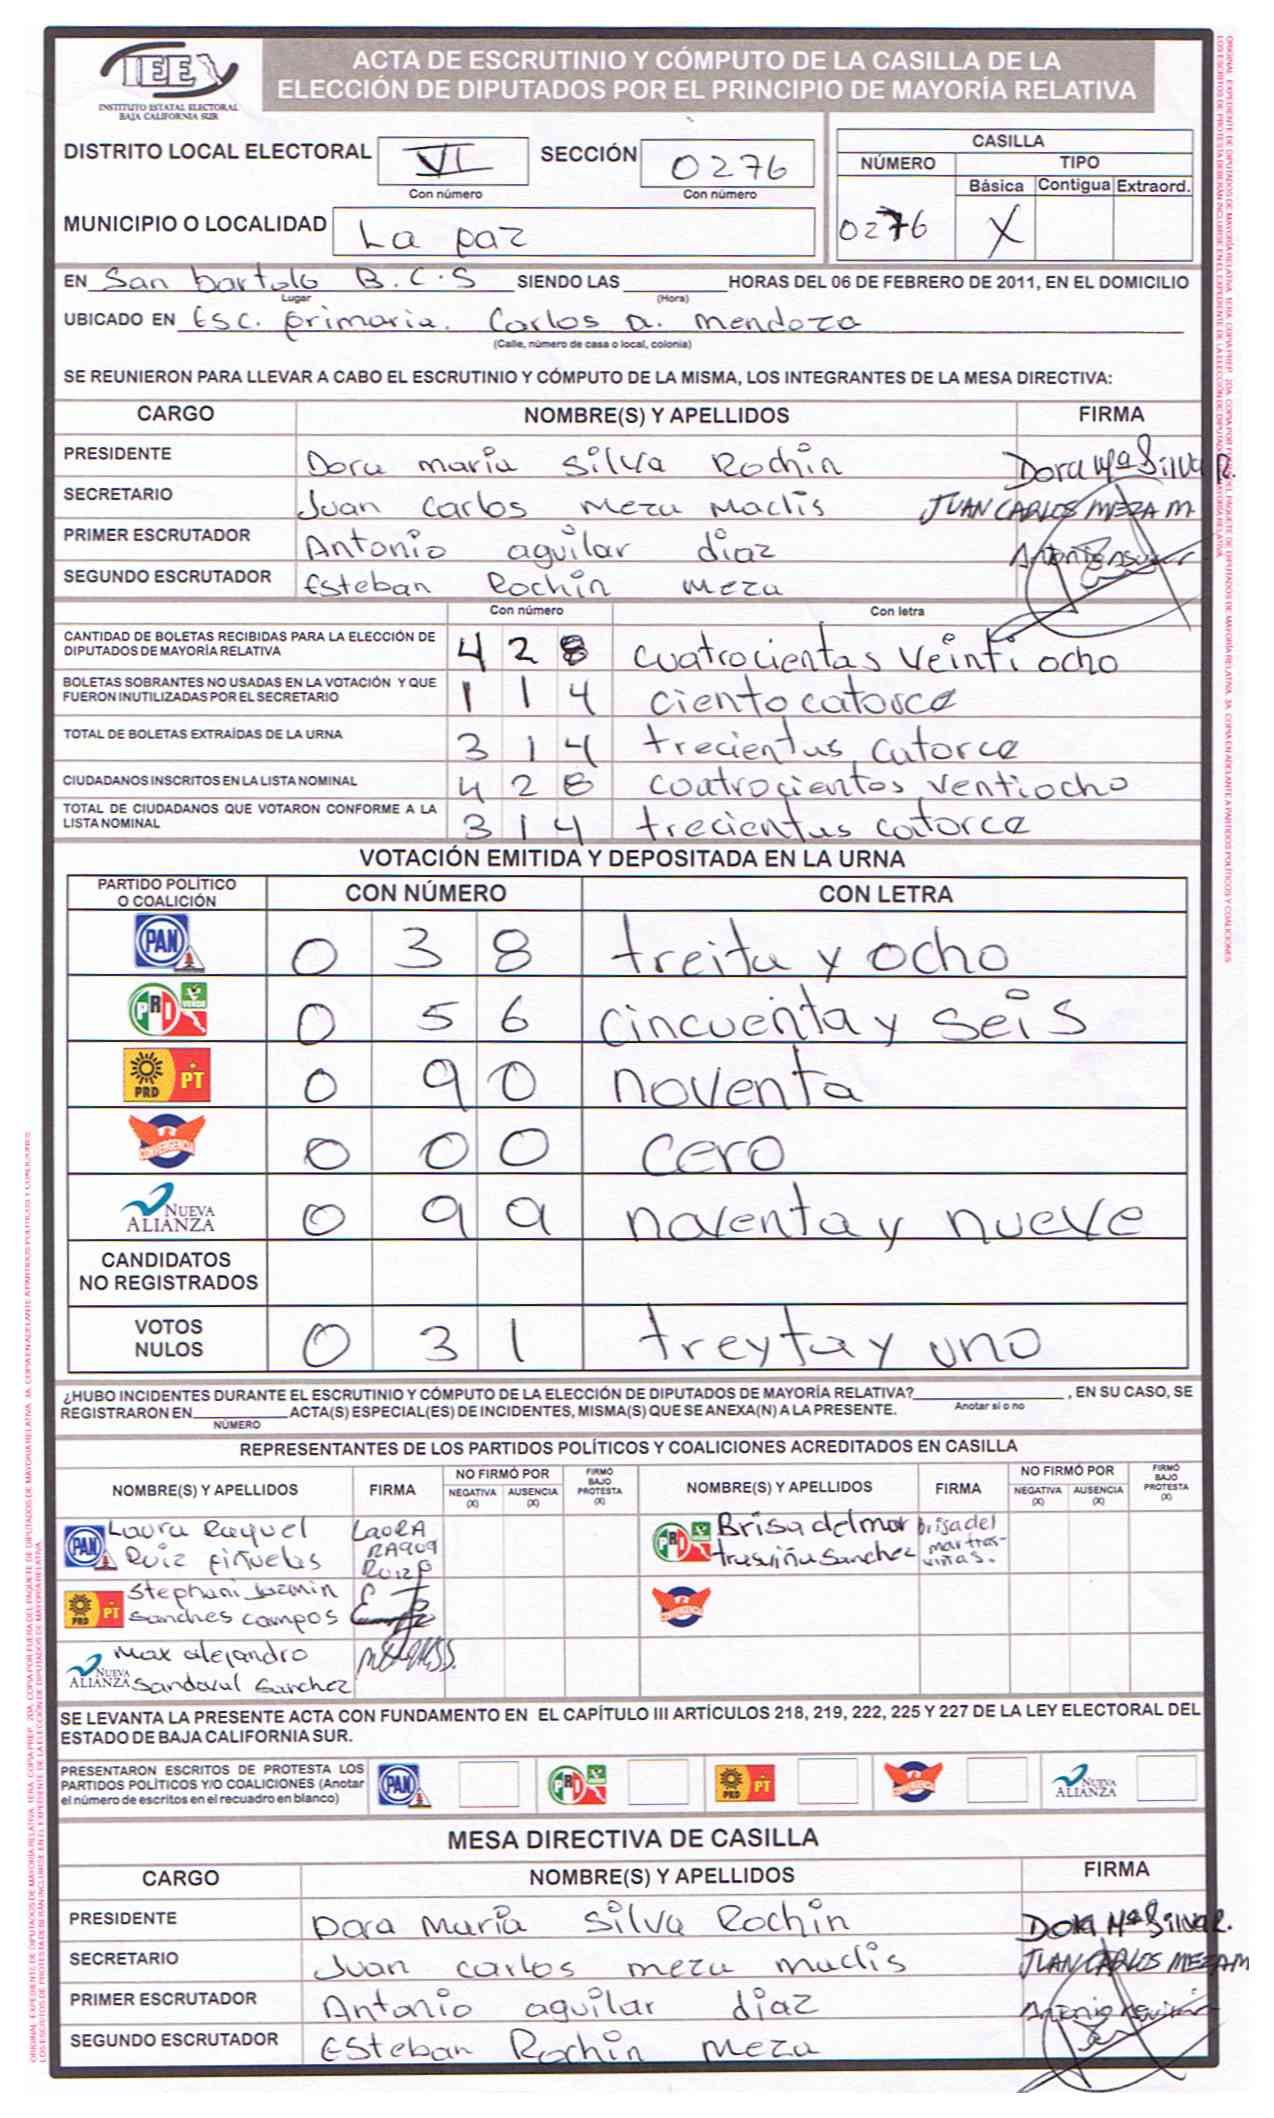 IEE
INSTITUTO ESTATAL ELECTORAL
BAJA CALIFORNIA SUR
ACTA DE ESCRUTINIO Y CÓMPUTO DE LA CASILLA DE LA
ELECCIÓN DE DIPUTADOS POR EL PRINCIPIO DE MAYORÍA RELATIVA
DISTRITO LOCAL ELECTORAL VI SECCIÓN 0276
Con número Con número
MUNICIPIO O LOCALIDAD La paz
CASILLA
NÚMERO TIPO
Básica Contigua Extraord.
0276 X
EN San bartolo B.C.S SIENDO LAS ________ HORAS DEL 06 DE FEBRERO DE 2011, EN EL DOMICILIO
Lugar (Hora)
UBICADO EN Esc. primaria. Carlos a. mendoza
(Calle, número de casa o local, colonia)
SE REUNIERON PARA LLEVAR A CABO EL ESCRUTINIO Y CÓMPUTO DE LA MISMA, LOS INTEGRANTES DE LA MESA DIRECTIVA:
CARGO NOMBRE(S) Y APELLIDOS FIRMA
PRESIDENTE Dora maria Silva Rochin Dora Mª Silva R.
SECRETARIO Juan Carlos Meza Maclis JUAN CARLOS MEZA M
PRIMER ESCRUTADOR Antonio aguilar diaz Antonio
SEGUNDO ESCRUTADOR Esteban Rochin meza
Con número Con letra
CANTIDAD DE BOLETAS RECIBIDAS PARA LA ELECCIÓN DE
DIPUTADOS DE MAYORÍA RELATIVA 428 cuatrocientas veinti ocho
BOLETAS SOBRANTES NO USADAS EN LA VOTACIÓN Y QUE
FUERON INUTILIZADAS POR EL SECRETARIO 114 ciento catorce
TOTAL DE BOLETAS EXTRAÍDAS DE LA URNA 314 trecientas catorce
CIUDADANOS INSCRITOS EN LA LISTA NOMINAL 428 cuatrocientos ventiocho
TOTAL DE CIUDADANOS QUE VOTARON CONFORME A LA
LISTA NOMINAL 314 trecientas catorce
VOTACIÓN EMITIDA Y DEPOSITADA EN LA URNA
PARTIDO POLÍTICO
O COALICIÓN CON NÚMERO CON LETRA
PAN 0 3 8 treita y ocho
PRI VERDE 0 5 6 cincuenta y seis
PRD PT 0 9 0 noventa
CONVERGENCIA 0 0 0 cero
NUEVA
ALIANZA 0 9 9 noventa y nueve
CANDIDATOS
NO REGISTRADOS
VOTOS
NULOS 0 3 1 treyta y uno
¿HUBO INCIDENTES DURANTE EL ESCRUTINIO Y CÓMPUTO DE LA ELECCIÓN DE DIPUTADOS DE MAYORÍA RELATIVA?________, EN SU CASO, SE
Anotar si o no
REGISTRARON EN________ ACTA(S) ESPECIAL(ES) DE INCIDENTES, MISMA(S) QUE SE ANEXA(N) A LA PRESENTE.
NÚMERO
REPRESENTANTES DE LOS PARTIDOS POLÍTICOS Y COALICIONES ACREDITADOS EN CASILLA
NOMBRE(S) Y APELLIDOS FIRMA NO FIRMÓ POR NEGATIVA (X) AUSENCIA (X) FIRMÓ BAJO PROTESTA (X) NOMBRE(S) Y APELLIDOS FIRMA NO FIRMÓ POR NEGATIVA (X) AUSENCIA (X) FIRMÓ BAJO PROTESTA (X)
PAN Laura Raquel
Ruiz piñuelas
LAORA
RAQUQ
Ruiz P
PRI Brisa del mar
trasviña Sanchez
brisa del
mar tras-
viñas.
PRD PT Stephani Jazmin
Sanches campos
CONVERGENCIA
NUEVA
ALIANZA Max alejandro
Sandoval Sanchez
SE LEVANTA LA PRESENTE ACTA CON FUNDAMENTO EN EL CAPÍTULO III ARTÍCULOS 218, 219, 222, 225 Y 227 DE LA LEY ELECTORAL DEL
ESTADO DE BAJA CALIFORNIA SUR.
PRESENTARON ESCRITOS DE PROTESTA LOS
PARTIDOS POLÍTICOS Y/O COALICIONES (Anotar
el número de escritos en el recuadro en blanco)
PAN PRI VERDE PRD PT CONVERGENCIA NUEVA ALIANZA
MESA DIRECTIVA DE CASILLA
CARGO NOMBRE(S) Y APELLIDOS FIRMA
PRESIDENTE Dora Maria Silva Rochin Dora Mª Silva R.
SECRETARIO Juan carlos meza maclis JUAN CARLOS MEZA M
PRIMER ESCRUTADOR Antonio aguilar diaz Antonio
SEGUNDO ESCRUTADOR Esteban Rochin meza